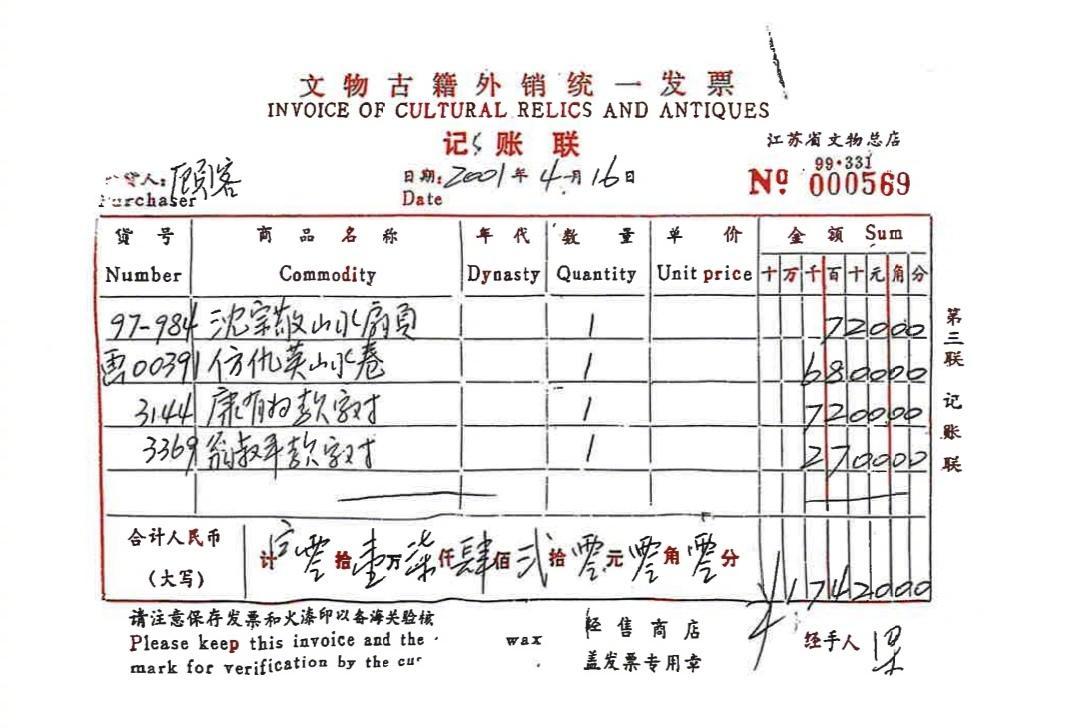 文物古籍外销统一发票
INVOICE OF CULTURAL RELICS AND ANTIQUES
记账联
江苏省文物总店
99·331
货人: 顾客 日期: 2001年4月16日 Nº 000569
Purchaser Date
货号 商品名称 年代 数量 单价 金额 Sum
Number Commodity Dynasty Quantity Unit price 十万千百十元角分
97-984 沈宗敬山水扇页 1 72000
00391 仿仇英山水卷 1 680000
3144 康有为款字对 1 720000
3369 翁叔平款字对 1 270000
合计人民币 (大写) 计 零拾壹万柒仟肆佰弍拾零元零角零分 ¥1742000
第三联 记账联
请注意保存发票和火漆印以备海关验核 经售商店 经手人 梁
Please keep this invoice and the wax 盖发票专用章
mark for verification by the